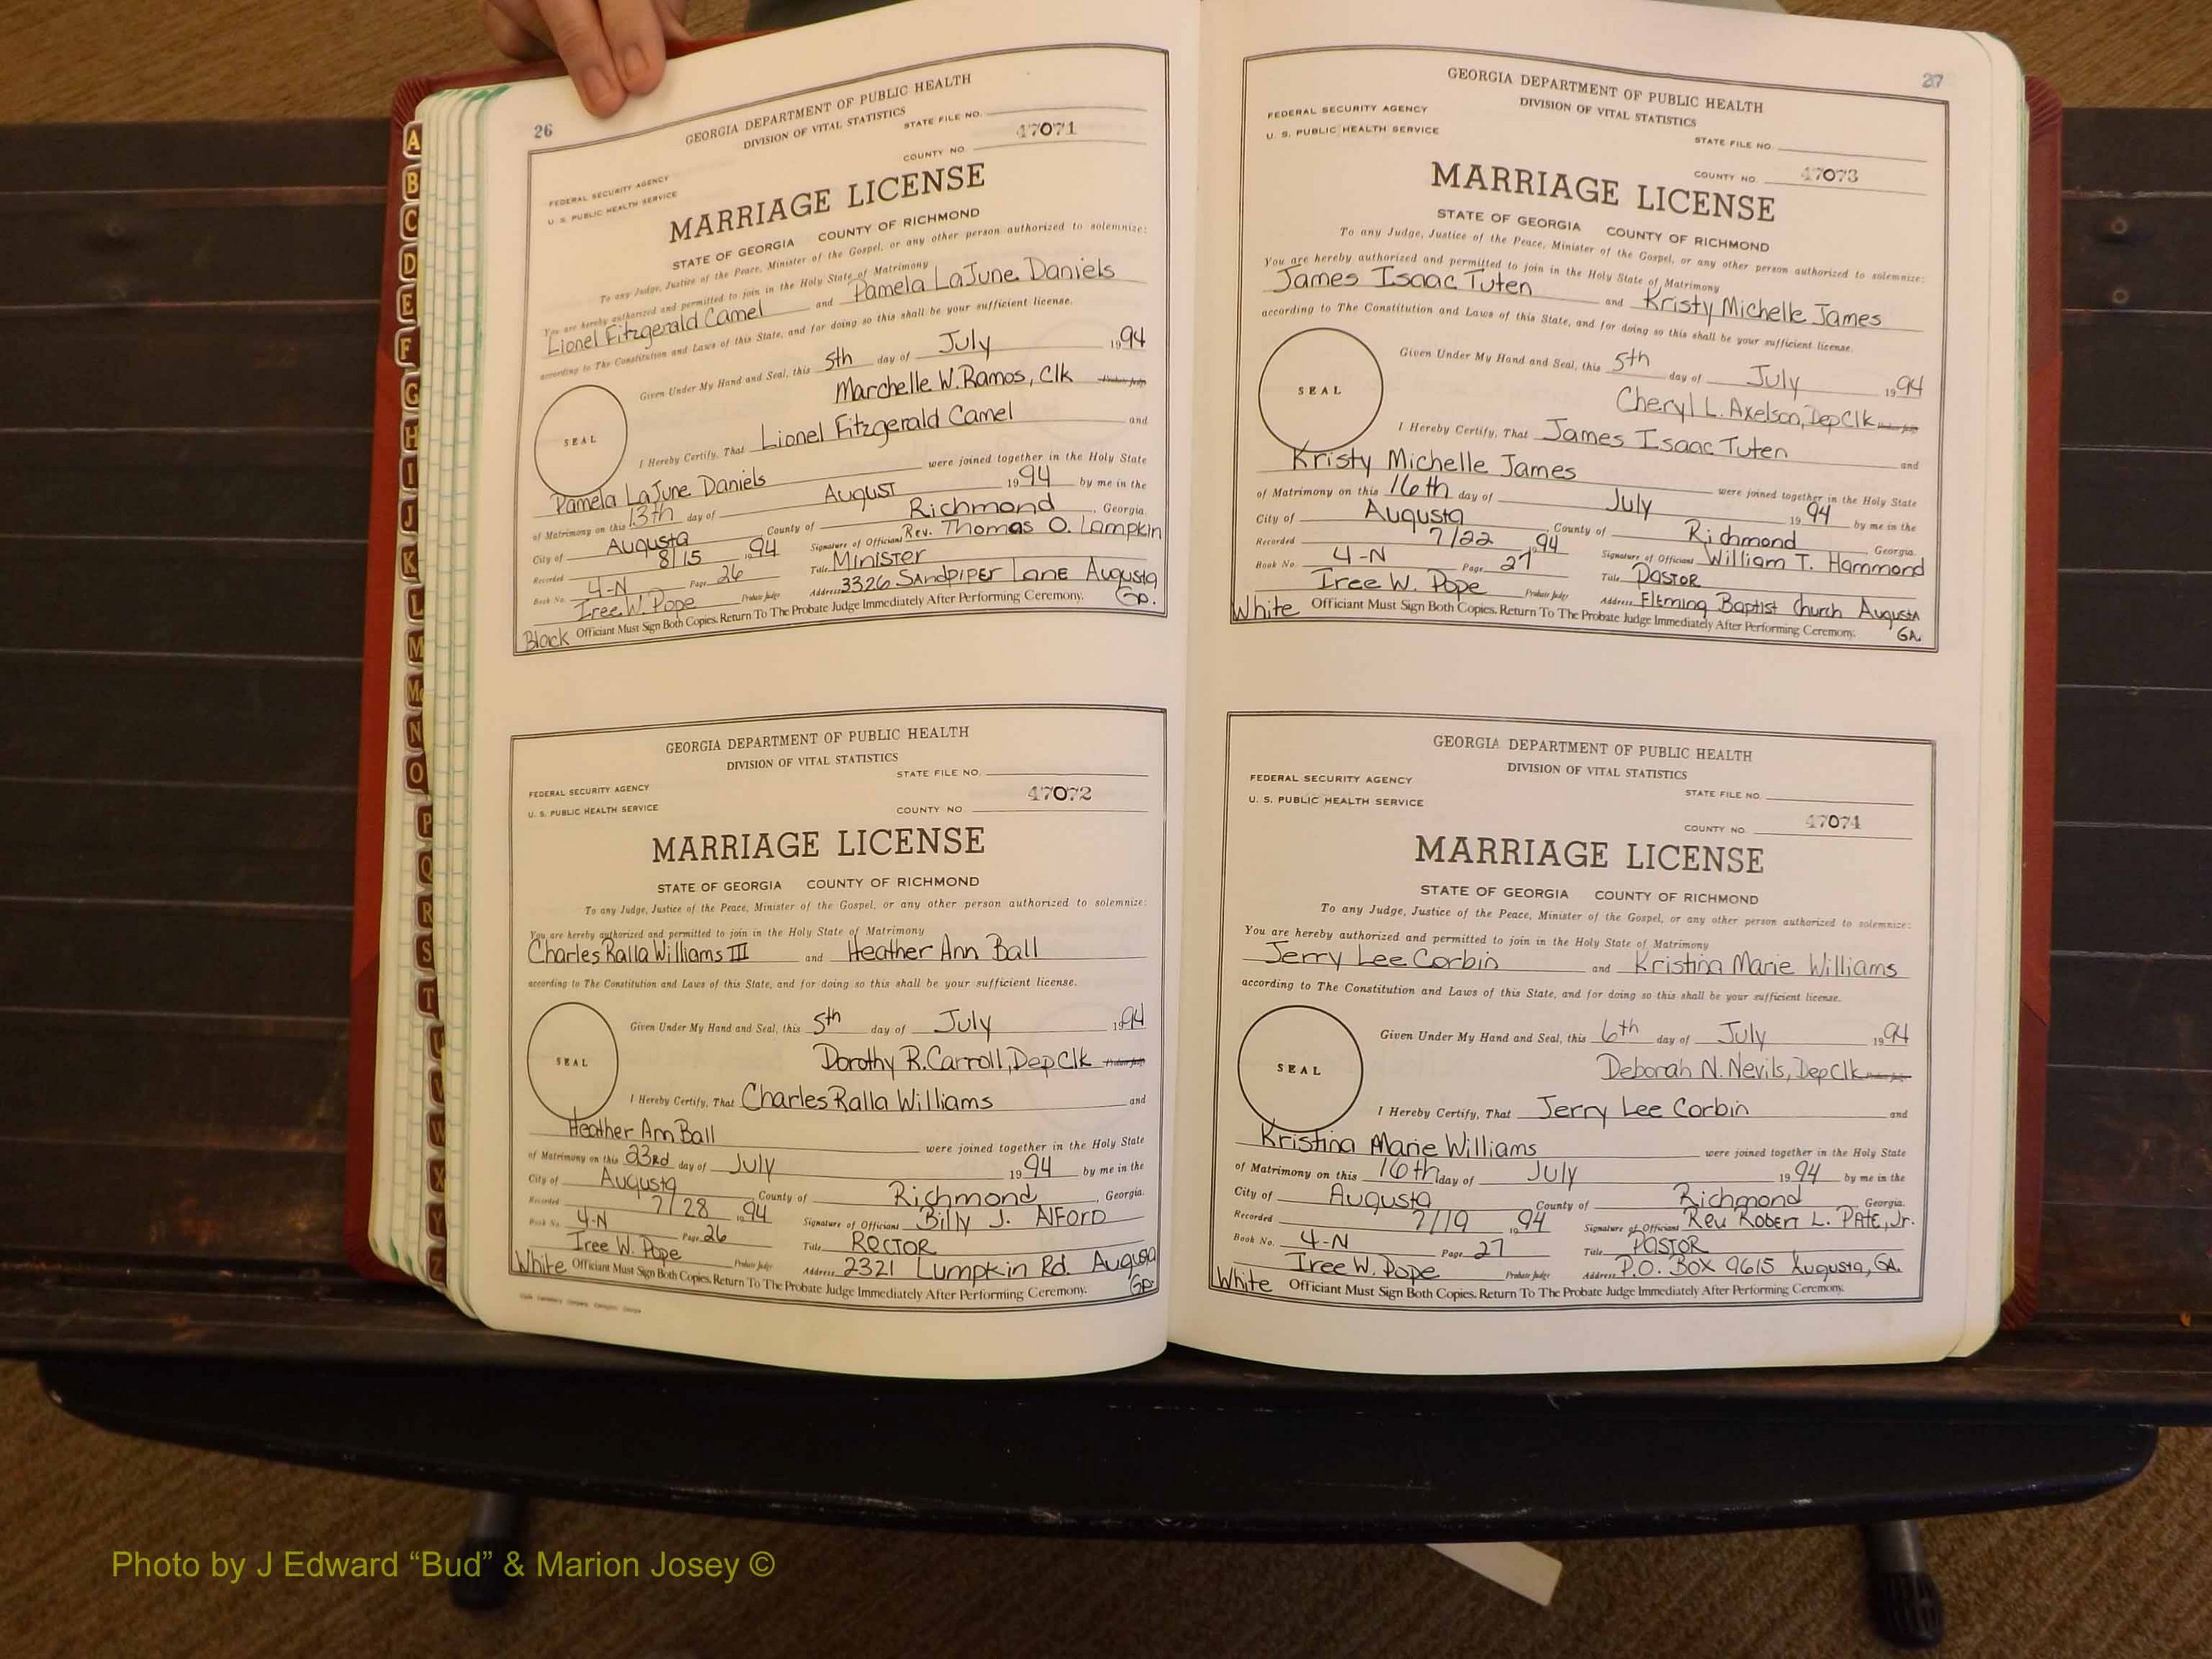 26
GEORGIA DEPARTMENT OF PUBLIC HEALTH
DIVISION OF VITAL STATISTICS
STATE FILE NO.
47071
COUNTY NO.
FEDERAL SECURITY AGENCY
U. S. PUBLIC HEALTH SERVICE
MARRIAGE LICENSE
STATE OF GEORGIA COUNTY OF RICHMOND
To any Judge, Justice of the Peace, Minister of the Gospel, or any other person authorized to solemnize:
You are hereby authorized and permitted to join in the Holy State of Matrimony
Lionel Fitzgerald Camel and Pamela LaJune Daniels
according to The Constitution and Laws of this State, and for doing so this shall be your sufficient license.
Given Under My Hand and Seal, this 5th day of July 1994
Marchelle W. Ramos, Clk Probate Judge
SEAL
I Hereby Certify, That Lionel Fitzgerald Camel and
Pamela LaJune Daniels were joined together in the Holy State
of Matrimony on this 13th day of August 1994 by me in the
City of Augusta County of Richmond, Georgia.
Recorded 8/15 1994 Signature of Officiant Rev. Thomas O. Lampkin
Book No. 4-N Page 26 Title Minister
Iree W. Pope Probate Judge Address 3326 Sandpiper Lane Augusta GA.
Black Officiant Must Sign Both Copies. Return To The Probate Judge Immediately After Performing Ceremony.
GEORGIA DEPARTMENT OF PUBLIC HEALTH
DIVISION OF VITAL STATISTICS
STATE FILE NO.
FEDERAL SECURITY AGENCY
47072
U. S. PUBLIC HEALTH SERVICE
COUNTY NO.
MARRIAGE LICENSE
STATE OF GEORGIA COUNTY OF RICHMOND
To any Judge, Justice of the Peace, Minister of the Gospel, or any other person authorized to solemnize:
You are hereby authorized and permitted to join in the Holy State of Matrimony
Charles Ralla Williams III and Heather Ann Ball
according to The Constitution and Laws of this State, and for doing so this shall be your sufficient license.
Given Under My Hand and Seal, this 5th day of July 1994
Dorothy R. Carroll, Dep Clk Probate Judge
SEAL
I Hereby Certify, That Charles Ralla Williams and
Heather Ann Ball were joined together in the Holy State
of Matrimony on this 23rd day of July 1994 by me in the
City of Augusta County of Richmond, Georgia.
Recorded 7/28 1994 Signature of Officiant Billy J. Alford
Book No. 4-N Page 26 Title Rector
Iree W. Pope Probate Judge Address 2321 Lumpkin Rd. Augusta GA.
White Officiant Must Sign Both Copies. Return To The Probate Judge Immediately After Performing Ceremony.
27
GEORGIA DEPARTMENT OF PUBLIC HEALTH
DIVISION OF VITAL STATISTICS
FEDERAL SECURITY AGENCY
U. S. PUBLIC HEALTH SERVICE
STATE FILE NO.
COUNTY NO. 47073
MARRIAGE LICENSE
STATE OF GEORGIA COUNTY OF RICHMOND
To any Judge, Justice of the Peace, Minister of the Gospel, or any other person authorized to solemnize:
You are hereby authorized and permitted to join in the Holy State of Matrimony
James Isaac Tuten and Kristy Michelle James
according to The Constitution and Laws of this State, and for doing so this shall be your sufficient license.
Given Under My Hand and Seal, this 5th day of July 1994
Cheryl L. Axelson, Dep Clk Probate Judge
SEAL
I Hereby Certify, That James Isaac Tuten and
Kristy Michelle James were joined together in the Holy State
of Matrimony on this 16th day of July 1994 by me in the
City of Augusta, County of Richmond, Georgia.
Recorded 7/22 1994 Signature of Officiant William T. Hammond
Book No. 4-N Page 27 Title Pastor
Iree W. Pope Probate Judge Address Fleming Baptist Church Augusta GA.
White Officiant Must Sign Both Copies. Return To The Probate Judge Immediately After Performing Ceremony.
GEORGIA DEPARTMENT OF PUBLIC HEALTH
DIVISION OF VITAL STATISTICS
FEDERAL SECURITY AGENCY
U. S. PUBLIC HEALTH SERVICE
STATE FILE NO.
COUNTY NO. 47074
MARRIAGE LICENSE
STATE OF GEORGIA COUNTY OF RICHMOND
To any Judge, Justice of the Peace, Minister of the Gospel, or any other person authorized to solemnize:
You are hereby authorized and permitted to join in the Holy State of Matrimony
Jerry Lee Corbin and Kristina Marie Williams
according to The Constitution and Laws of this State, and for doing so this shall be your sufficient license.
Given Under My Hand and Seal, this 6th day of July 1994
Deborah N. Nevils, Dep Clk Probate Judge
SEAL
I Hereby Certify, That Jerry Lee Corbin and
Kristina Marie Williams were joined together in the Holy State
of Matrimony on this 16th day of July 1994 by me in the
City of Augusta County of Richmond, Georgia.
Recorded 7/19 1994 Signature of Officiant Rev Robert L. Pate, Jr.
Book No. 4-N Page 27 Title Pastor
Iree W. Pope Probate Judge Address P.O. Box 9615 Augusta, GA.
White Officiant Must Sign Both Copies. Return To The Probate Judge Immediately After Performing Ceremony.
A
B
C
D
E
F
G
H
I
J
K
L
M
Mc
N
O
P
Q
R
S
T
U
V
W
X
Y
Z
Photo by J Edward “Bud” & Marion Josey ©